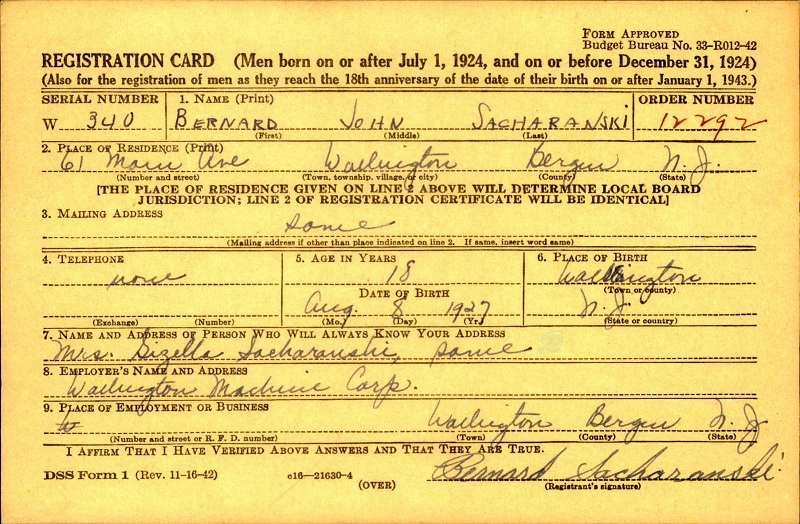 FORM APPROVED
Budget Bureau No. 33-R012-42
REGISTRATION CARD (Men born on or after July 1, 1924, and on or before December 31, 1924)
(Also for the registration of men as they reach the 18th anniversary of the date of their birth on or after January 1, 1943.)
SERIAL NUMBER 1. NAME (Print) ORDER NUMBER
W 340 BERNARD JOHN SACHARANSKI 12292
(First) (Middle) (Last)
2. PLACE OF RESIDENCE (Print)
61 Main Ave Wallington Bergen N.J.
(Number and street) (Town, township, village, or city) (County) (State)
[THE PLACE OF RESIDENCE GIVEN ON LINE 2 ABOVE WILL DETERMINE LOCAL BOARD
JURISDICTION; LINE 2 OF REGISTRATION CERTIFICATE WILL BE IDENTICAL]
3. MAILING ADDRESS
same
(Mailing address if other than place indicated on line 2. If same, insert word same)
4. TELEPHONE 5. AGE IN YEARS 6. PLACE OF BIRTH
none 18 Wallington
DATE OF BIRTH (Town or county)
Aug. 8 1927 N.J.
(Exchange) (Number) (Mo.) (Day) (Yr.) (State or country)
7. NAME AND ADDRESS OF PERSON WHO WILL ALWAYS KNOW YOUR ADDRESS
Mrs. Gizella Sacharanski, same
8. EMPLOYER'S NAME AND ADDRESS
Wallington Machine Corp.
9. PLACE OF EMPLOYMENT OR BUSINESS
Wallington Bergen N.J
(Number and street or R. F. D. number) (Town) (County) (State)
I AFFIRM THAT I HAVE VERIFIED ABOVE ANSWERS AND THAT THEY ARE TRUE.
DSS Form 1 (Rev. 11-16-42) c16—21630-4 Bernard Sacharanski
(OVER) (Registrant's signature)